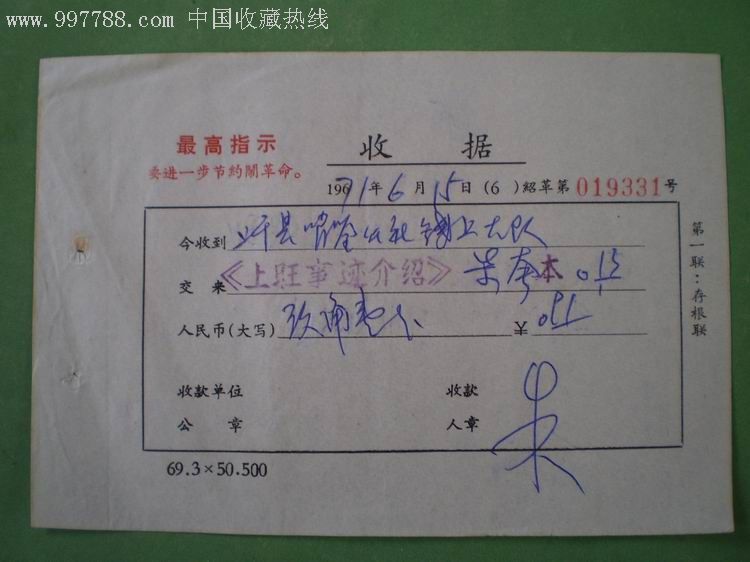 www.997788.com 中国收藏热线
最高指示
要进一步节约闹革命。
收据
1971年6月15日 (6) 紹革第019331号
今收到
交来 《上旺事迹介绍》 本 0.15
人民币(大写) 玖角 ¥ 0.91
收款单位 收款
公章 人章
朱
69.3×50.500
第一联:存根联